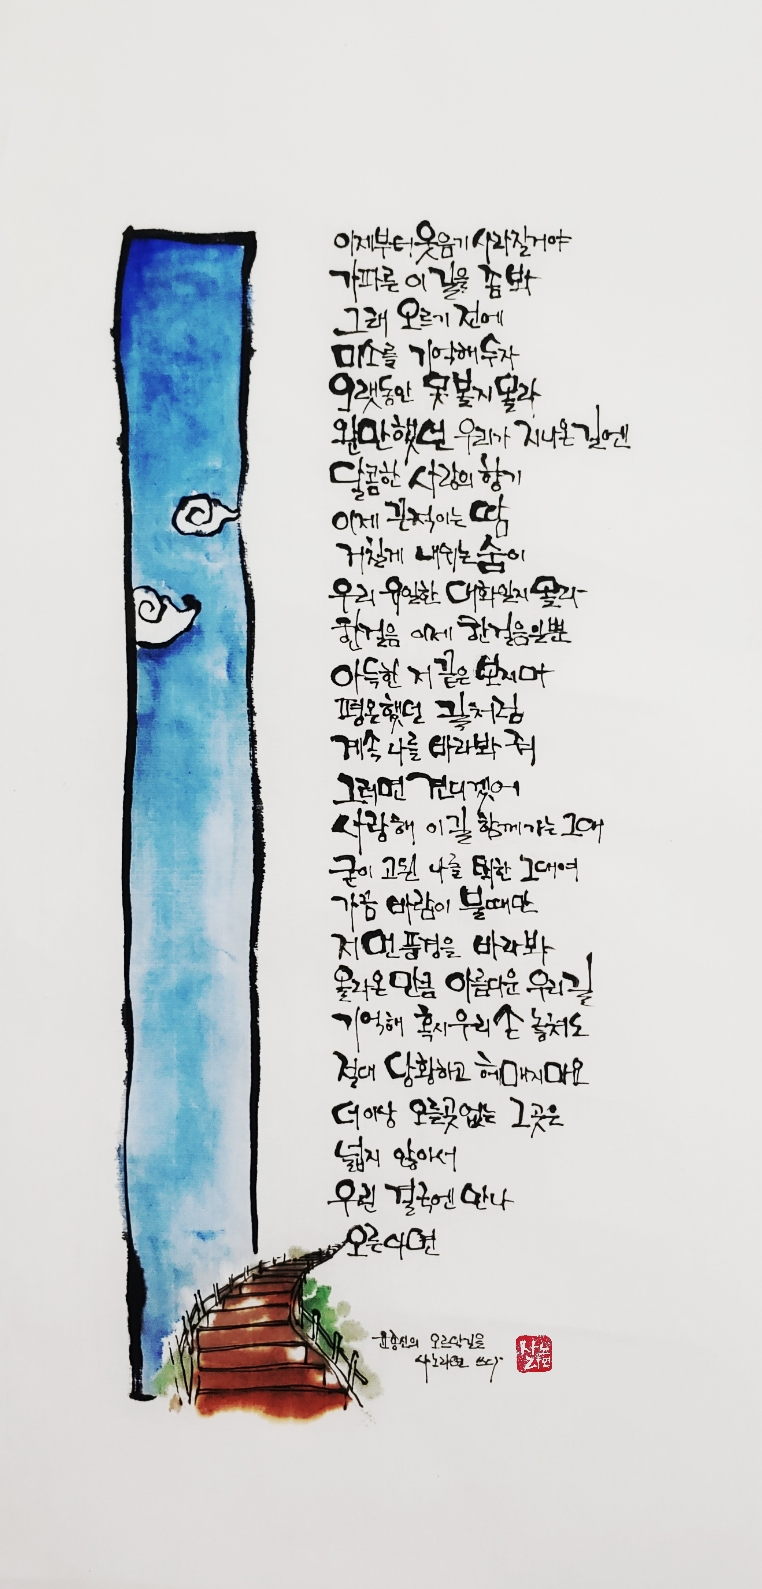 이제부터 웃음기 사라질거야
가파른 이 길을 좀 봐
그래 오르기 전에
미소를 기억해두자
오랫동안 못볼지 몰라
완만했던 우리가 지나온 길엔
달콤한 사랑의 향기
이제 끈적이는 땀
거칠게 내쉬는 숨이
우리 유일한 대화일지 몰라
한걸음 이제 한걸음일뿐
아득한 저 끝은 보지마
평온했던 길처럼
계속 나를 바라봐 줘
그러면 견디겠어
사랑해 이 길 함께 가는 그대
굳이 고된 나를 택한 그대여
가끔 바람이 불때만
저 먼 풍경을 바라봐
올라온 만큼 아름다운 우리 길
기억해 혹시 우리 손 놓쳐도
절대 당황하고 헤매지마요
더이상 오를곳 없는 그곳은
넓지 않아서
우린 결국엔 만나
오른다면
윤종신의 오르막길을
사노라면 쓰다
사노라면